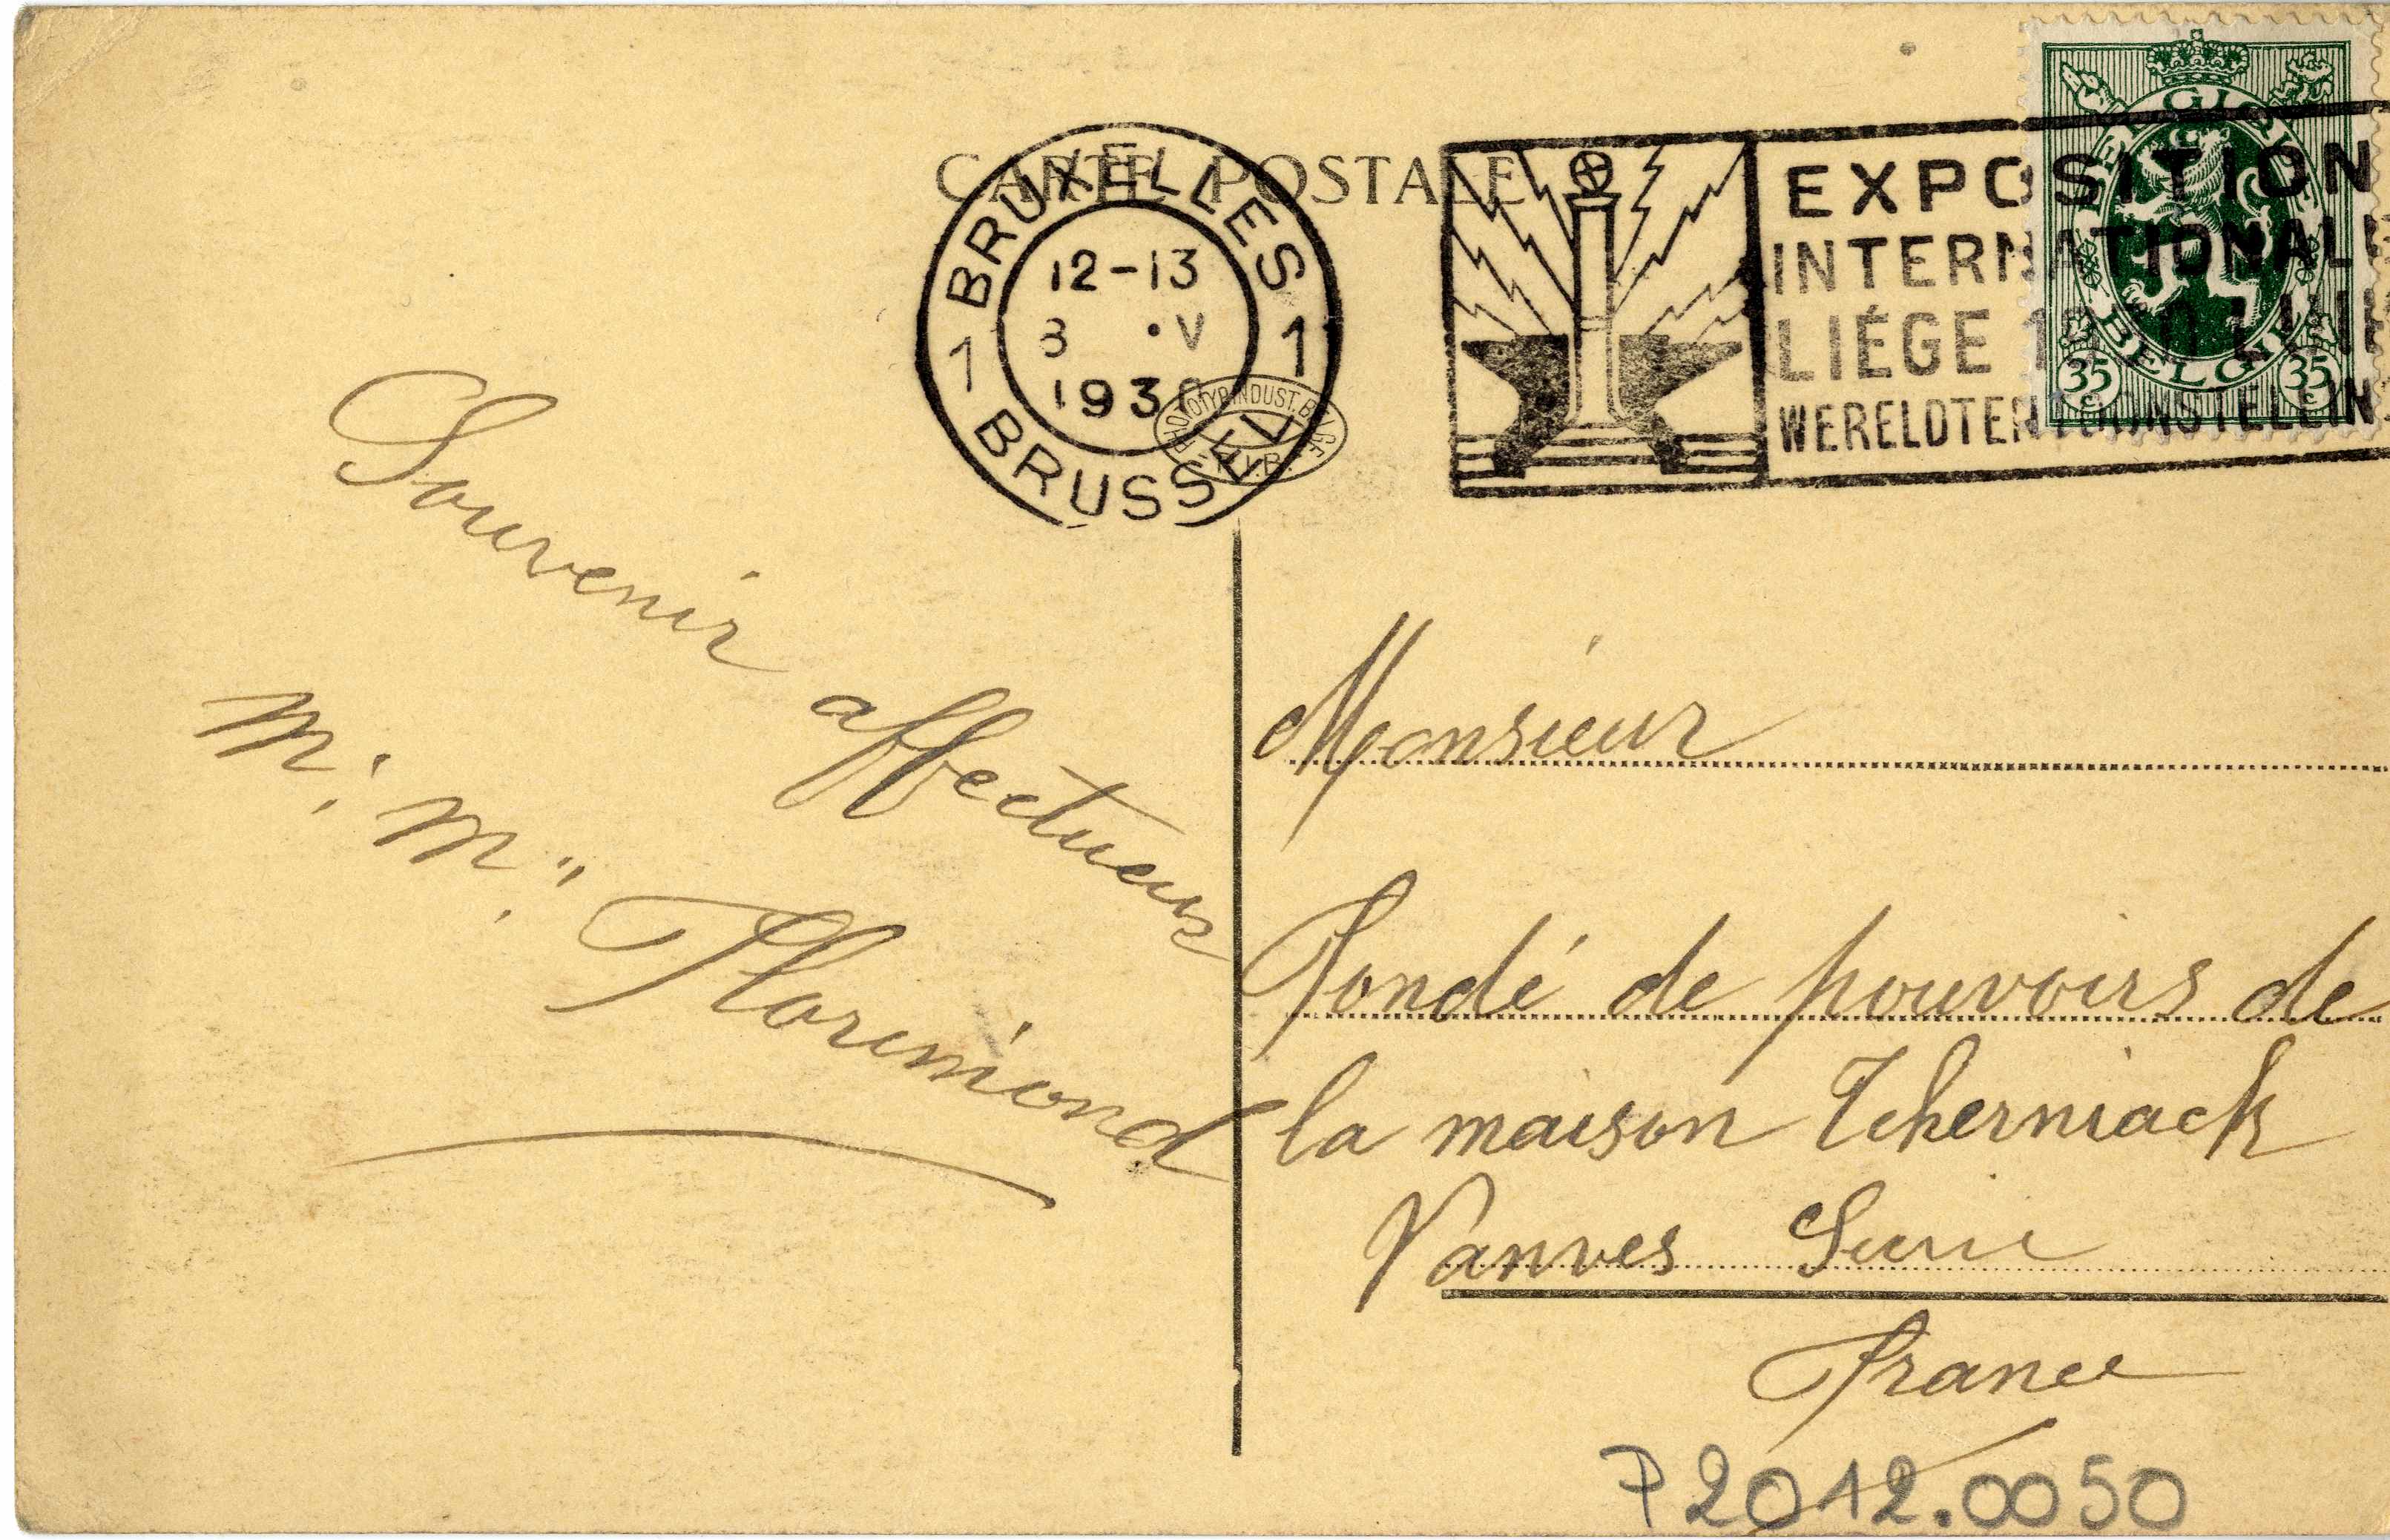 CARTE POSTALE
BRUXELLES
1 1
12-13
8 • V
1930
BRUSSEL
EXPOSITION
INTERNATIONALE
LIÉGE 1930 LUIK
WERELDTENTOONSTELLING
BELGIQUE
BELGIË
35 c 35 c
PHOTOTYP. INDUST. BELGE
Souvenir affectueux
M. M. Florimond
Monsieur
Fondé de pouvoirs de
la maison Tcherniack
Vanves Seine
France
P2012.0050